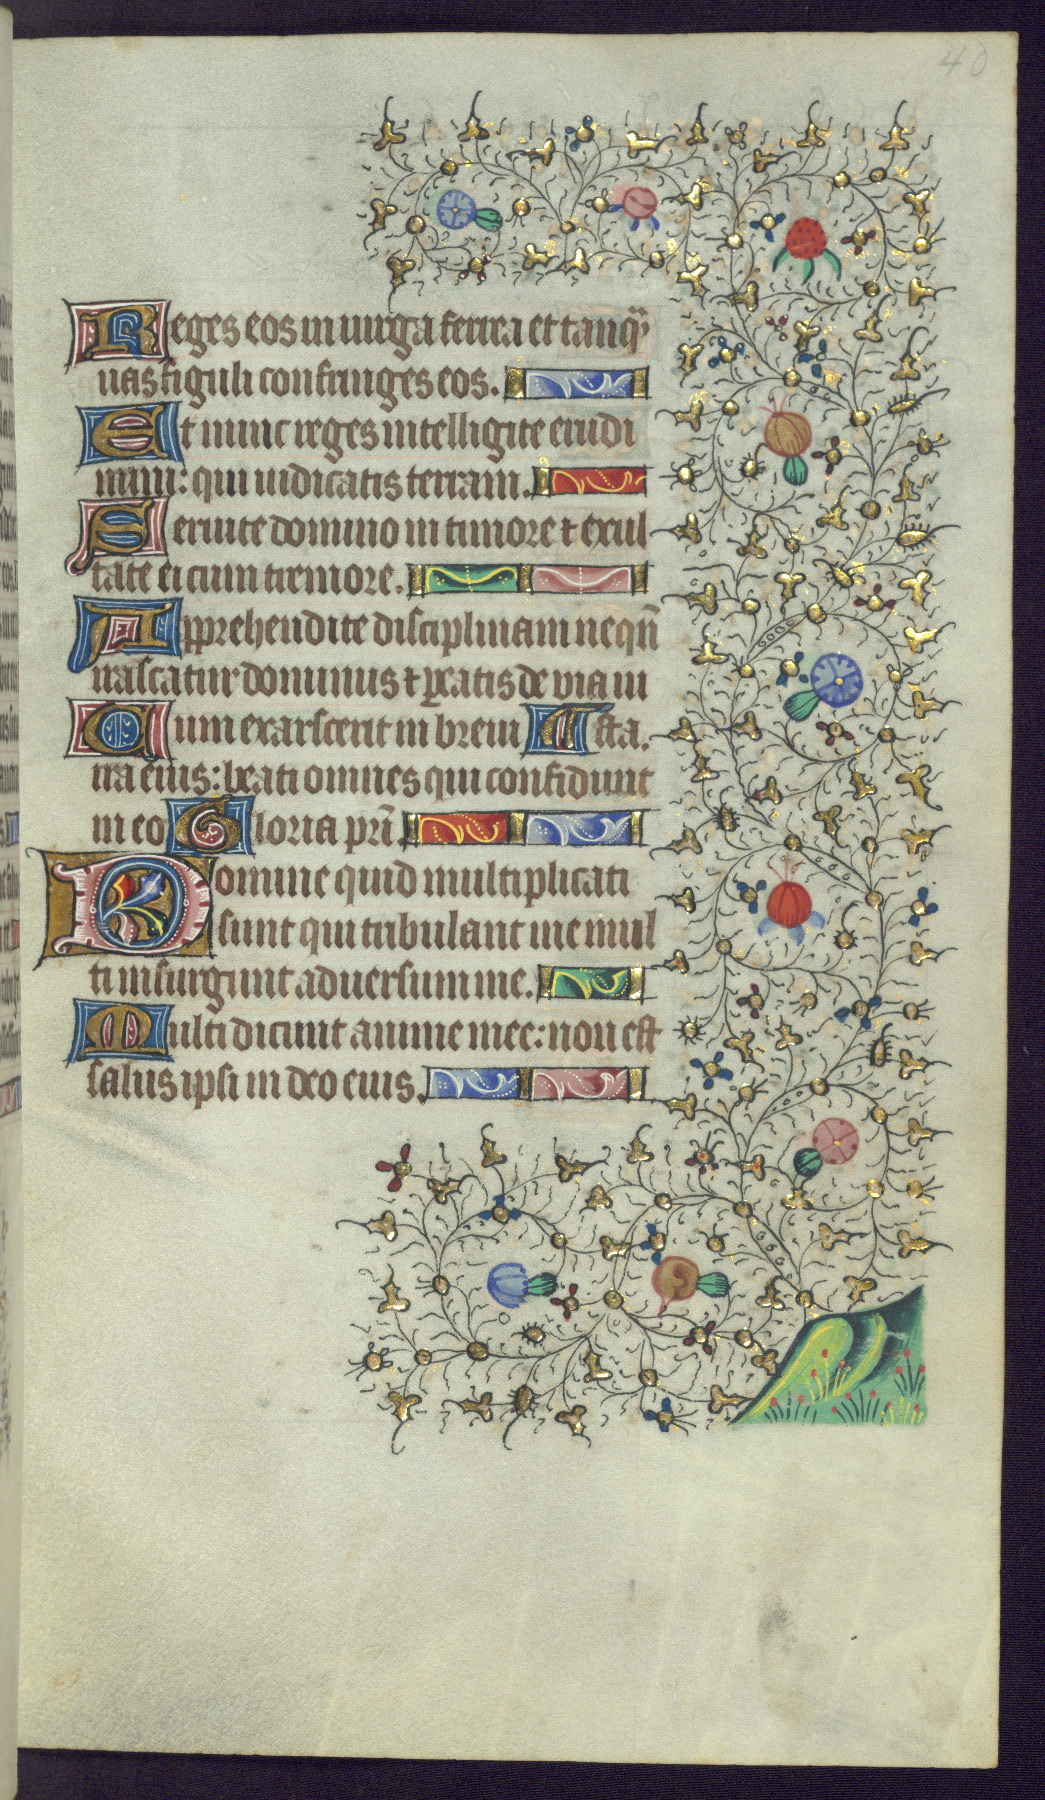 40
Reges eos in virga ferrea et tanq̃
vas figuli confringes eos.
Et nunc reges intelligite erudi
mini: qui iudicatis terram.
Seruite domino in timore ⁊ exul
tate ei cum tremore.
Apprehendite disciplinam neqñ
irascatur dominus ⁊ ꝑeatis de via iu
Cum exarserit in breui Ista.
ira eius: beati omnes qui confidunt
in eo Gloria pr̃i.
Domine quid multiplicati
sunt qui tribulant me mul
ti insurgunt aduersum me.
Multi dicunt anime mee: non est
salus ipsi in deo eius.